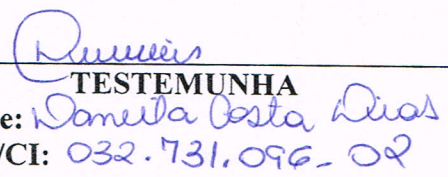 TESTEMUNHA
e: Daniella Costa Dias
/CI: 032.731.096-02